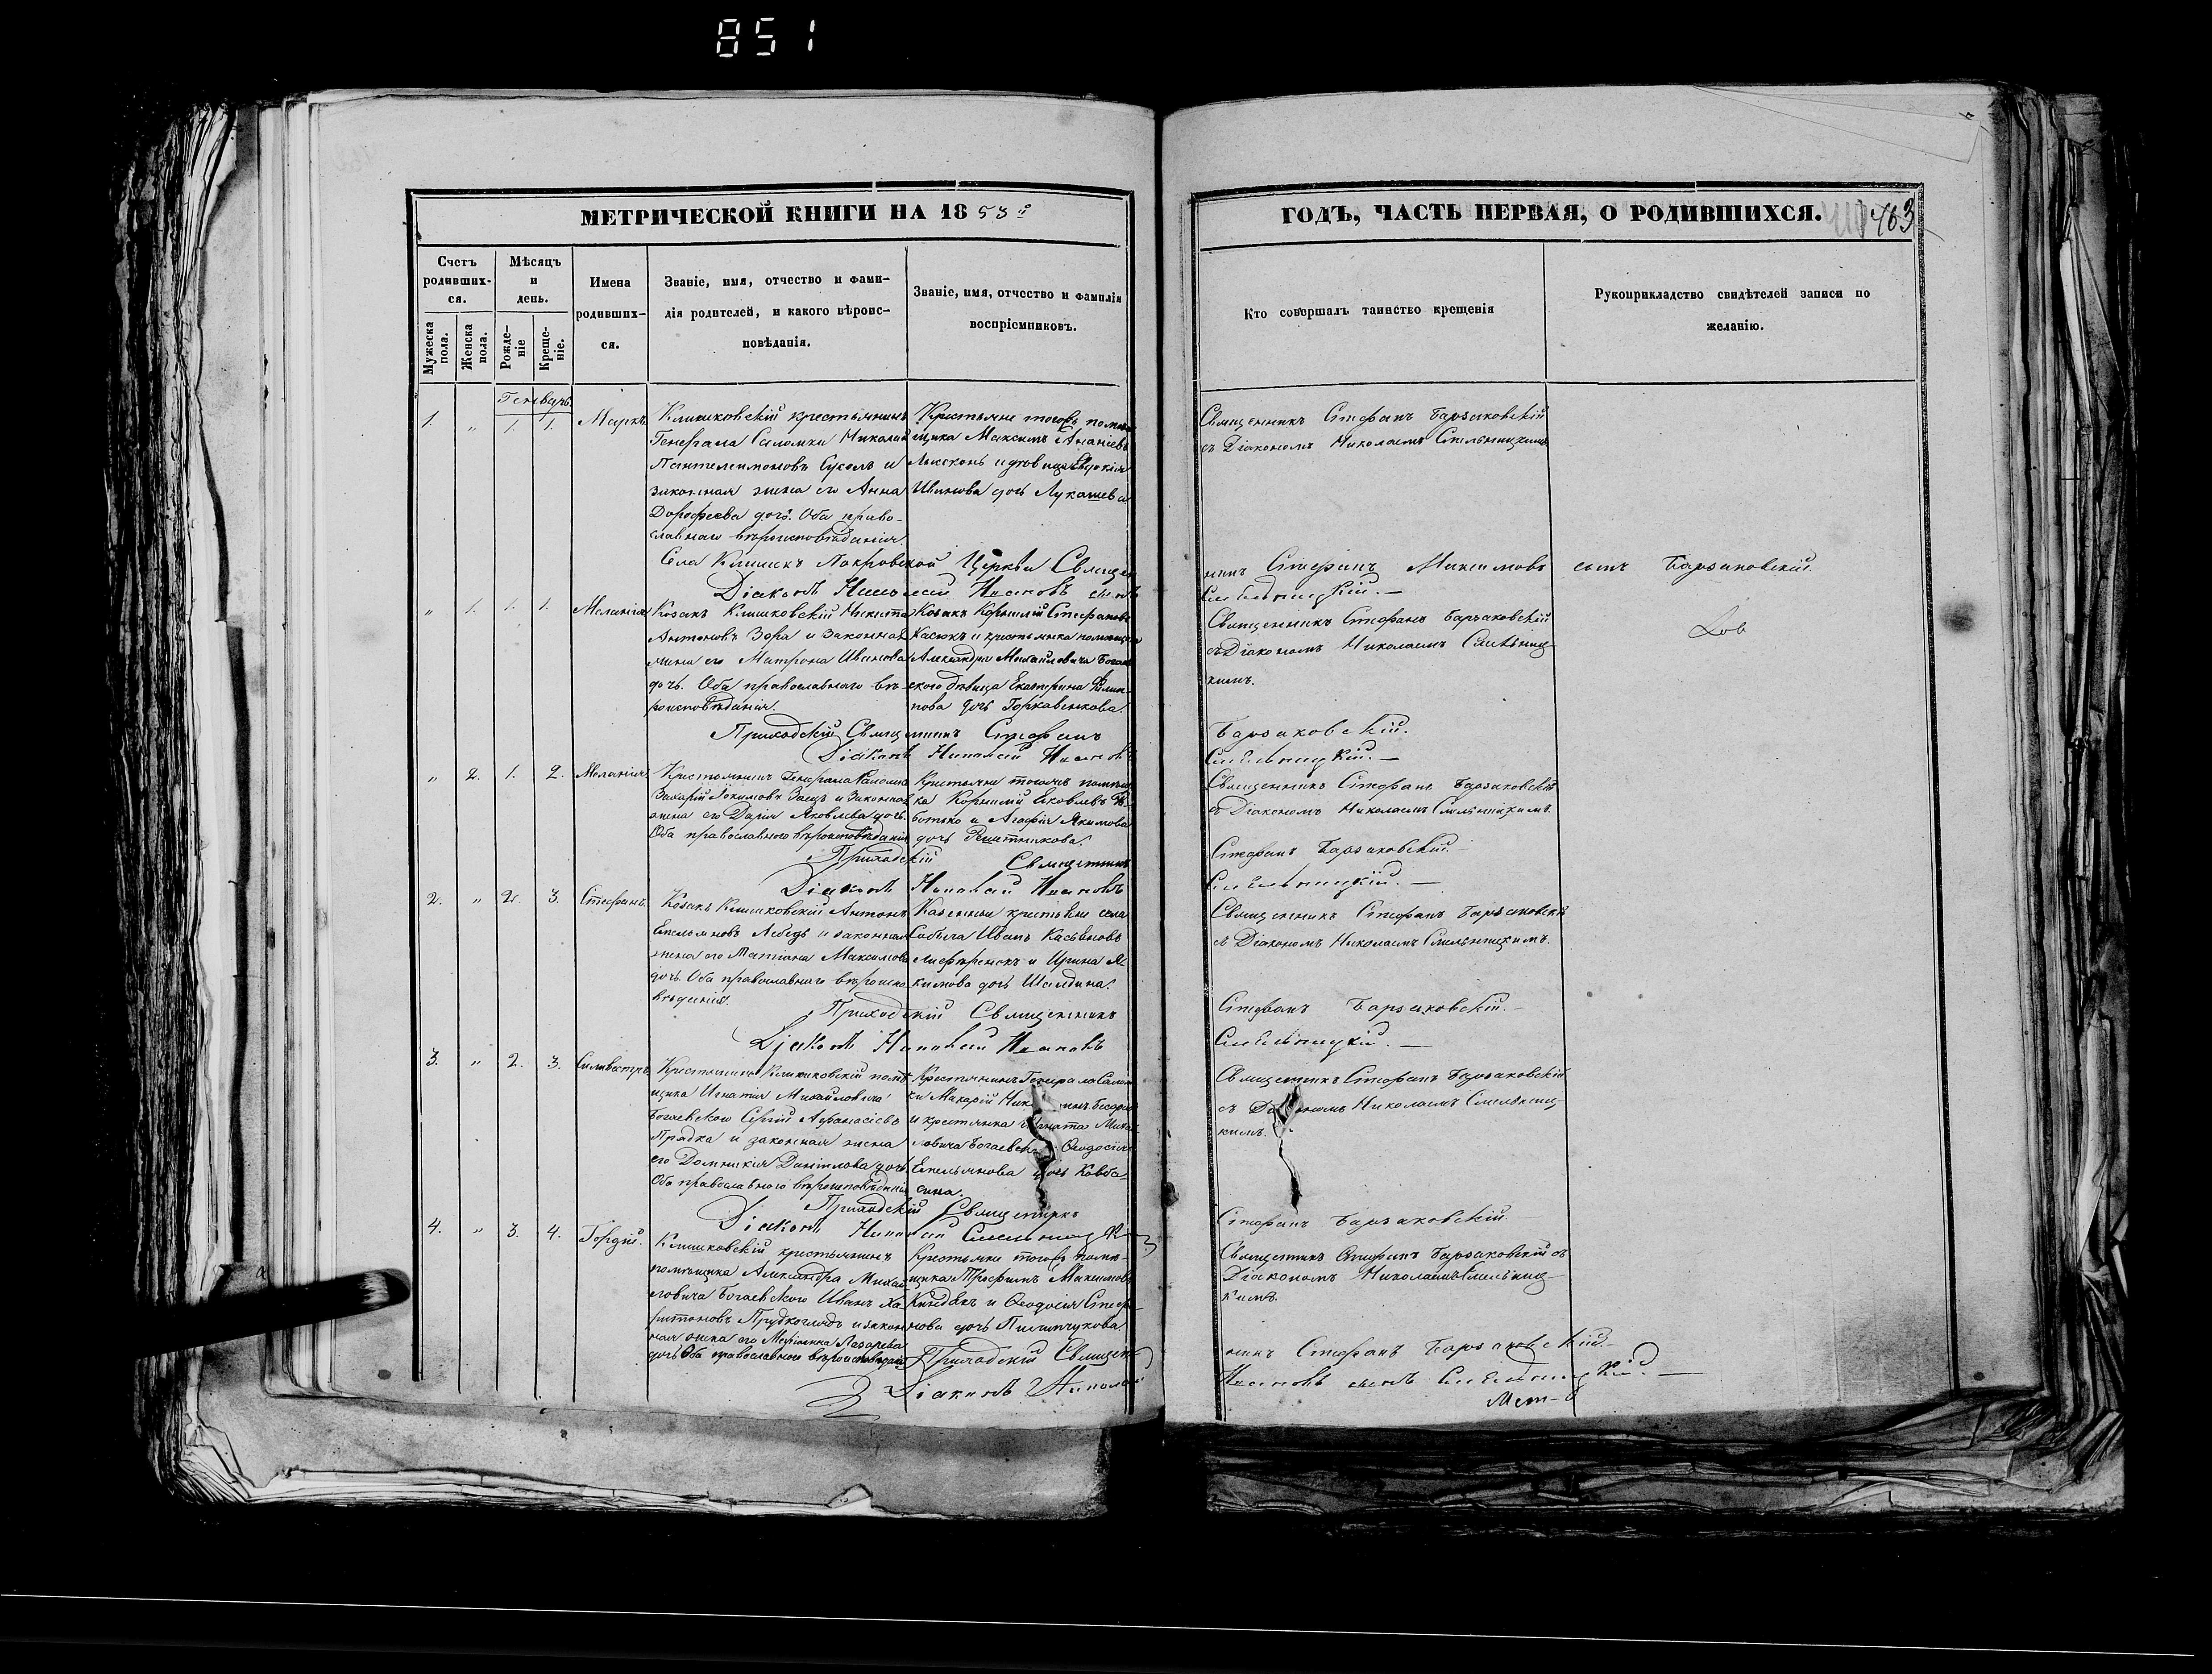 851
МЕТРИЧЕСКОЙ КНИГИ НА 1853й
ГОДЪ, ЧАСТЬ ПЕРВАЯ, О РОДИВШИХСЯ.
403
Счетъ родивших-ся.
Мѣсяцъ и день.
Имена родивших-ся.
Званіе, имя, отчество и фами-
лія родителей, и какого вѣроис-
повѣданія.
Званіе, имя, отчество и фамилія
воспріемниковъ.
Кто совершалъ таинство крещенія
Рукоприкладство свидѣтелей записи по
желанію.
Мужеска пола.
Женска пола.
Рожде-ніе
Креще-ніе.
Генварь.
1. " 1. 1. Маркъ
Клишковскій крестьянинъ
Генерала Саломки Николай
Пантелеимоновъ Сусолъ и
законная жена его Анна
Дорофеева дочь. Оба право-
славнаго вѣроисповѣданія.
Крестьяне тогожъ помѣ-
щика Максимъ Ананіевъ
и дѣвица Евдокія
Иванова дочь Лукашева
Священникъ Стефанъ Барзаковскій
съ Діакономъ Николаемъ Смѣльницкимъ
Села Клишекъ Покровской Церкви Священ
никъ Стефанъ Максимовъ сынъ Барзаковскій.
Діаконъ Николай Ивановъ сынъ
Смѣльницкій.—
" 1. 1. 1. Меланія
Козакъ Клишковскій Никита
Антоновъ Зора и законная
жена его Матрона Иванова
дочь. Оба православнаго вѣ-
роисповѣданія.
Козакъ Корнилій Стефановъ
Касюкъ и крестьянка помѣщика
Александра Михайловича Богаев
ского дѣвица Екатерина Филип-
пова дочь Горкавенкова.
Священникъ Стефанъ Барзаковскій
съ Діакономъ Николаемъ Смѣльниц-
кимъ.
Приходскій Священникъ Стефанъ
Барзаковскій.
Діаконъ Николай Ивановъ
Смѣльницкій.—
" 2. 1. 2. Меланія
Крестьянинъ Генерала Саломки
Захарій Іокимовъ Заецъ и законная
жена его Дарія Яковлева дочь.
Оба православного вѣроисповѣданія
Крестьяне тогожъ помѣщи
ка Корнилій Яковлевъ
и Агафія Якимова
дочь Решетникова.
Священникъ Стефанъ Барзаковскій
съ Діакономъ Николаемъ Смѣльницкимъ.
Приходскій Священникъ
Стефанъ Барзаковскій.—
Діаконъ Николай Ивановъ
Смѣльницкій.—
2. " 2. 3. Стефанъ
Козакъ Клишковскій Антонъ
Емельяновъ Лебедь и законная
жена его Татіана Максимова
дочь. Оба православнаго вѣроиспо
вѣданія.
Казенные крестьяне села
Собыча Иванъ Касьяновъ
и Ирина Я-
кимова дочь Шалдина.
Священникъ Стефанъ Барзаковскій
съ Діакономъ Николаемъ Смѣльницкимъ.
Приходскій Священникъ
Стефанъ Барзаковскій.—
Діаконъ Николай Ивановъ
Смѣльницкій.—
3. " 2. 3. Силвестръ
Крестьянинъ Клишковскій помѣ-
щика Игнатія Михайловича
Богаевского Сергій Афанасіевъ
Прядка и законная жена
его Домникія Данілова дочь.
Оба православного вѣроисповѣданія
Крестьянинъ Генерала Салом
ки Макарій
и крестьянка Игната Михай
ловича Богаевск Ѳеодосія
Емельянова дочь Ковба-
сина.
Священникъ Стефанъ Барзаковскій
съ Діакономъ Николаемъ Смѣльниц-
кимъ.
Приходскій Священникъ
Стефанъ Барзаковскій.
Діаконъ Николай
4. " 3. 4. Гордій.
Клишковскій крестьянинъ
помѣщика Александра Михай
ловича Богаевского Иванъ Ха
ритоновъ Прудкоглядъ и закон
ная жена его Маріамна Лазарева
дочь Оба православного вѣроисповѣданія
Крестьяне тогожъ помѣ-
щика Трофимъ Максимовъ
и Ѳеодосія Стефа-
нова дочь Пилипчукова.
Священникъ Стефанъ Барзаковскій съ
Діакономъ Николаемъ Смѣльниц-
кимъ.
Приходскій Священ
никъ Стефанъ Барзаковскій.—
Діаконъ Николай
Ивановъ сынъ Смѣльницкій.—